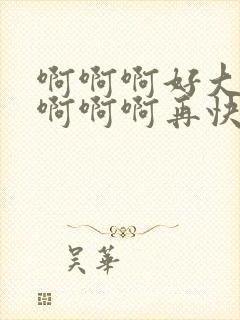 啊啊啊好大
啊啊啊再快
吴华